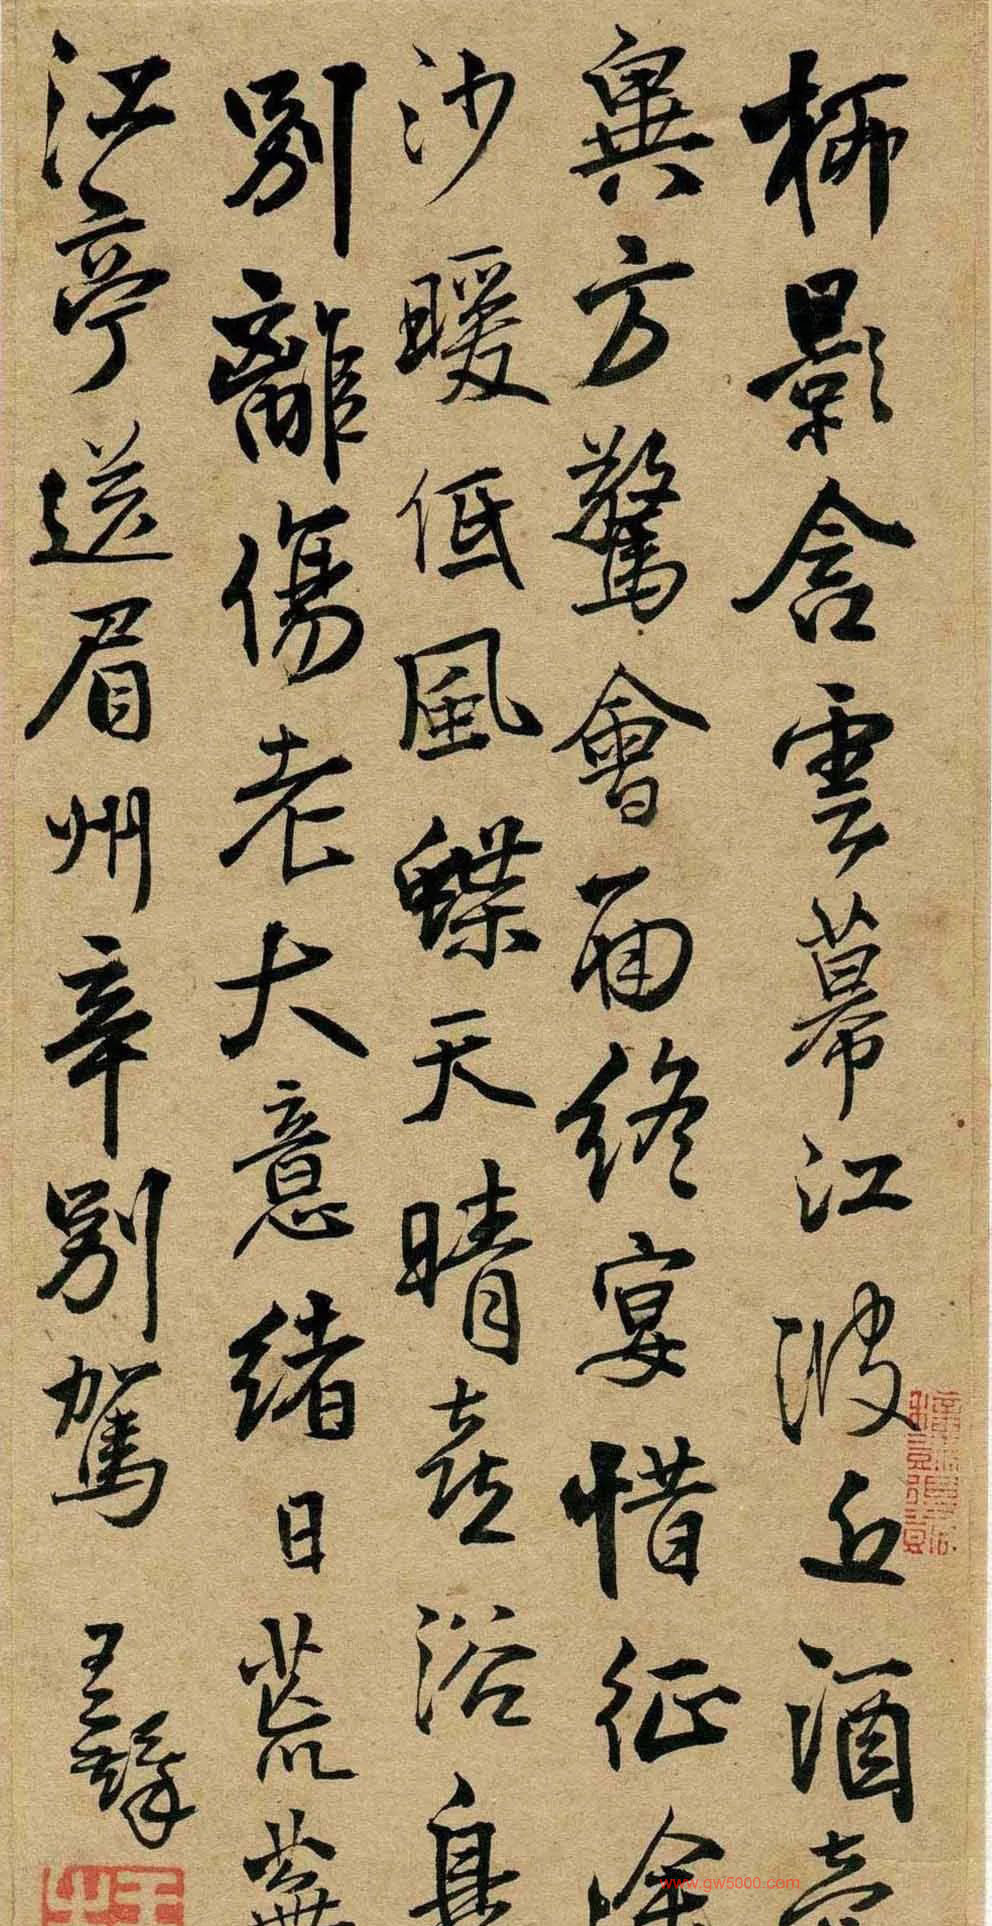 柳影含雲幕江波近酒壺
異方驚會面終宴惜征途
沙暖低風蝶天晴喜浴鳧
別離傷老大意緒日荒蕪
江亭送眉州辛別駕 王鐸
www.qw5000.com